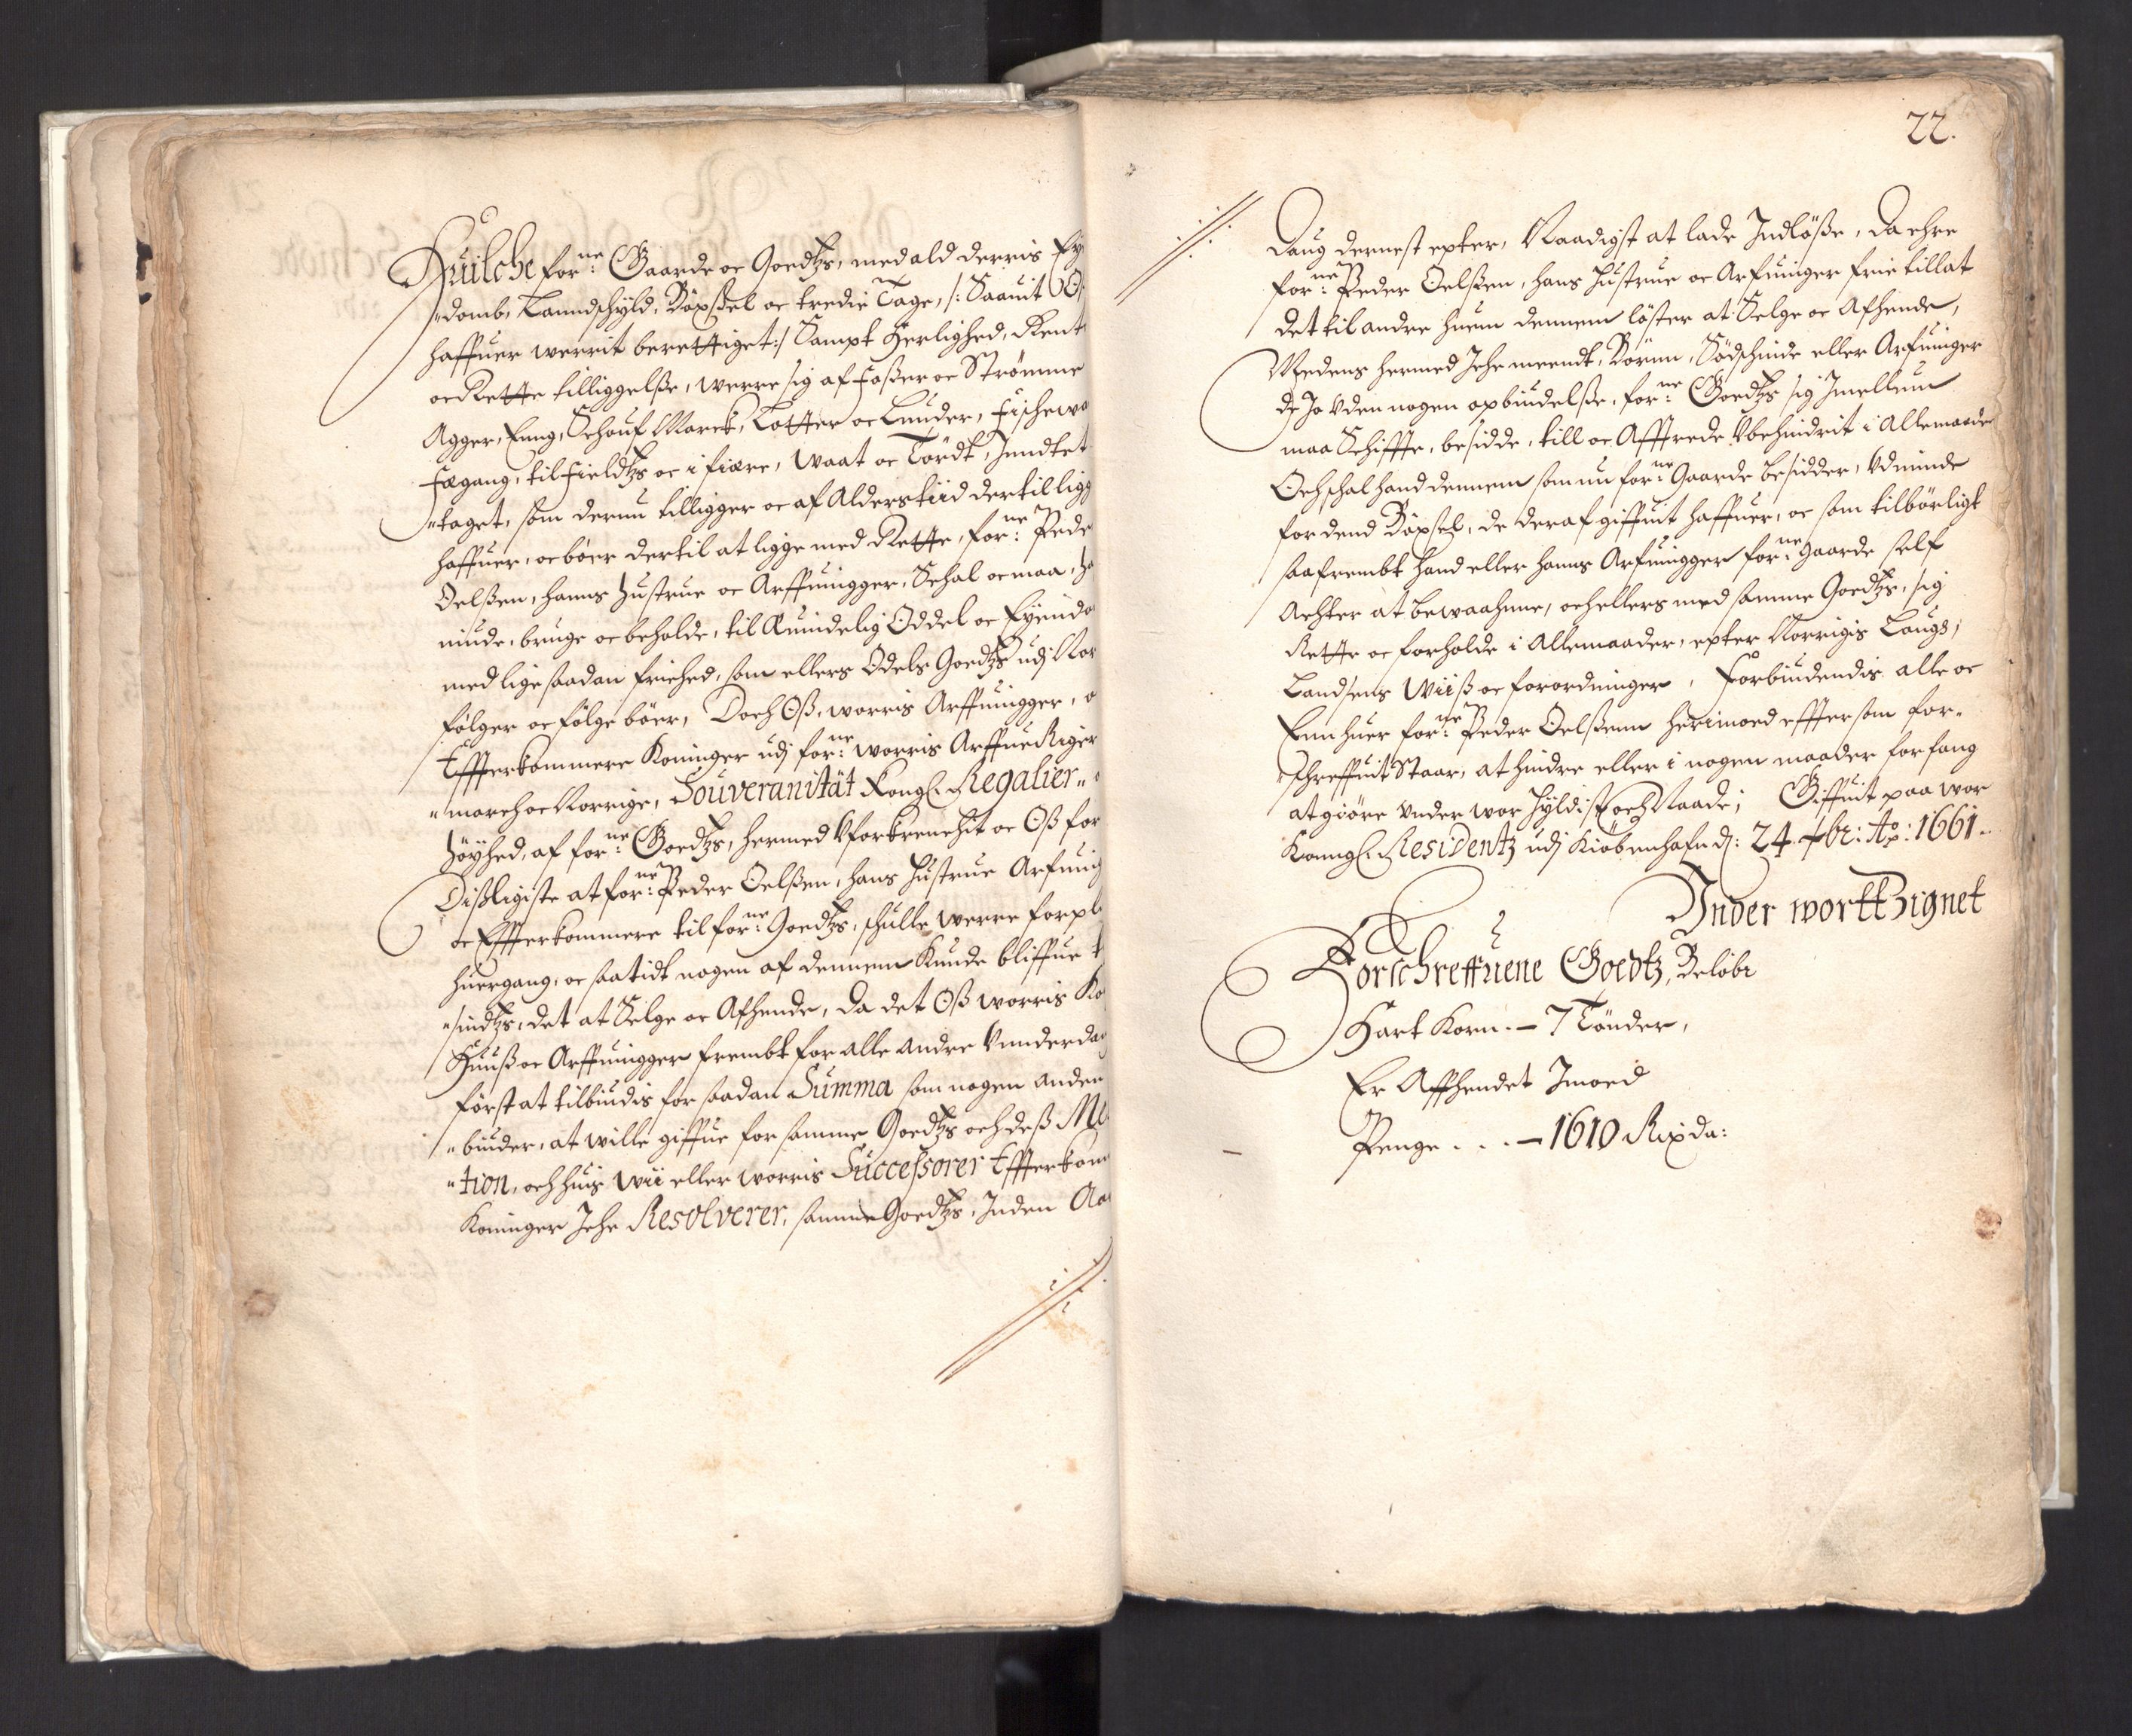 Huilche for:ne Gaarde oc Goedtzs, med ald derris Ey
"domb, Lanndschyld, Böxßel oc tredie Tage, /: Saauit O
haffuer werrit berettiget :/ Sampt Herlighed, Rent
oc Rette tilliggelße, werre sig af Foßer oc Strömme
Agger, Enng, Schouf Marck, Lotter oc Lunder, Fischewa
Fægang, til Fieldtzs oc i fiære, Waat oc Tördt, Inndtet
"taget, som der nu tilligger oc af Alders tiid dertil ligg
haffuer, oc böer dertil at ligge med Rette, for:ne Pede
Oelßen, hanns Hustrue oc Arffuingger, Schal oc maa,
niude, bruge oc beholde, til Æuindelig Oddel oc Eyendo
med lige saadan friehed, som ellers Odels Goedtzs udj Nor
følger oc følge böer, Doch Oß, worris Arffuingger, o
Effterkommere Koninger udj for:ne worris Arffue Riger
"march oc Norrige, Souveranität Kongl. Regalier" o
Höyhed, af for:ne Goedtzs, hermed Uforkrenchit oc Oß for
Dißligiste at for:ne Peder Oelßen, hans Hustrue Arfuing
oc Effterkommere til for:ne Goedtzs, schulle werre forpl
huergang, oc saa tidt nogen af dennem Kunde bliffue
"sindtzs, det at Selge oc Afhende, Da det Oß worris Ko
Huuß oc Arffuingger frembt for alle andre Vnnderda
först at tilbiudis for saadan Summa som nogen anden
"biuder, at wille giffue for samme Goedtzs och deß Me
"tion, och huis wii eller worris Successorer Effterkom
Koninger Iche Resolverer, samme Goedtzs, Inden Aa
22.
Daug dernest epter, Naadigst at lade Indlöße, Da ehre
for:ne Peder Oelßen, hans Hustrue oc Arfuinger frie tillat
det til andre huem dennem löster at Selge oc Afhende,
Medens hermed Iche meendt, Börnn, Södschinde eller Arfuinger
de Jo Uden nogen opbiudelße, for:ne Goedtzs sig Imellum
maa Schiffte, besidde, till oc Afftrede Ubehindrit i Allemaade
Och schal hand dennem som nu for:ne Gaarde besidder, Udminde
for dend Böxsel, de deraf giffuit haffuer, oc som tilbörligt
saafrembt hand eller hanns Arfuingger for:ne Gaarde self
Achter at bewaahnne, och ellers med samme Goedtzs, sig
Rette oc forholde i Allemaader, epter Norrigis Laugs,
Landsens Wiiß oc forordninger, Forbiudendis alle oc
Enn huer for:ne Peder Oelßenn herimoed effter som for"
"schreffuit Staar, at hindre eller i nogen maader forfang
at giöre under wor Hyldist och Naade; Giffuit paa wor
Konngl. Residentz udj Kiöbenhafn d: 24. 7br: Ao: 1661.
Under wortt Zignet
Forschreffuene Goedtz, Belöbr
Hart Korn. – 7 Tönder,
Er Affhendet Imoed
Penge . . . – 1610 Rixda: